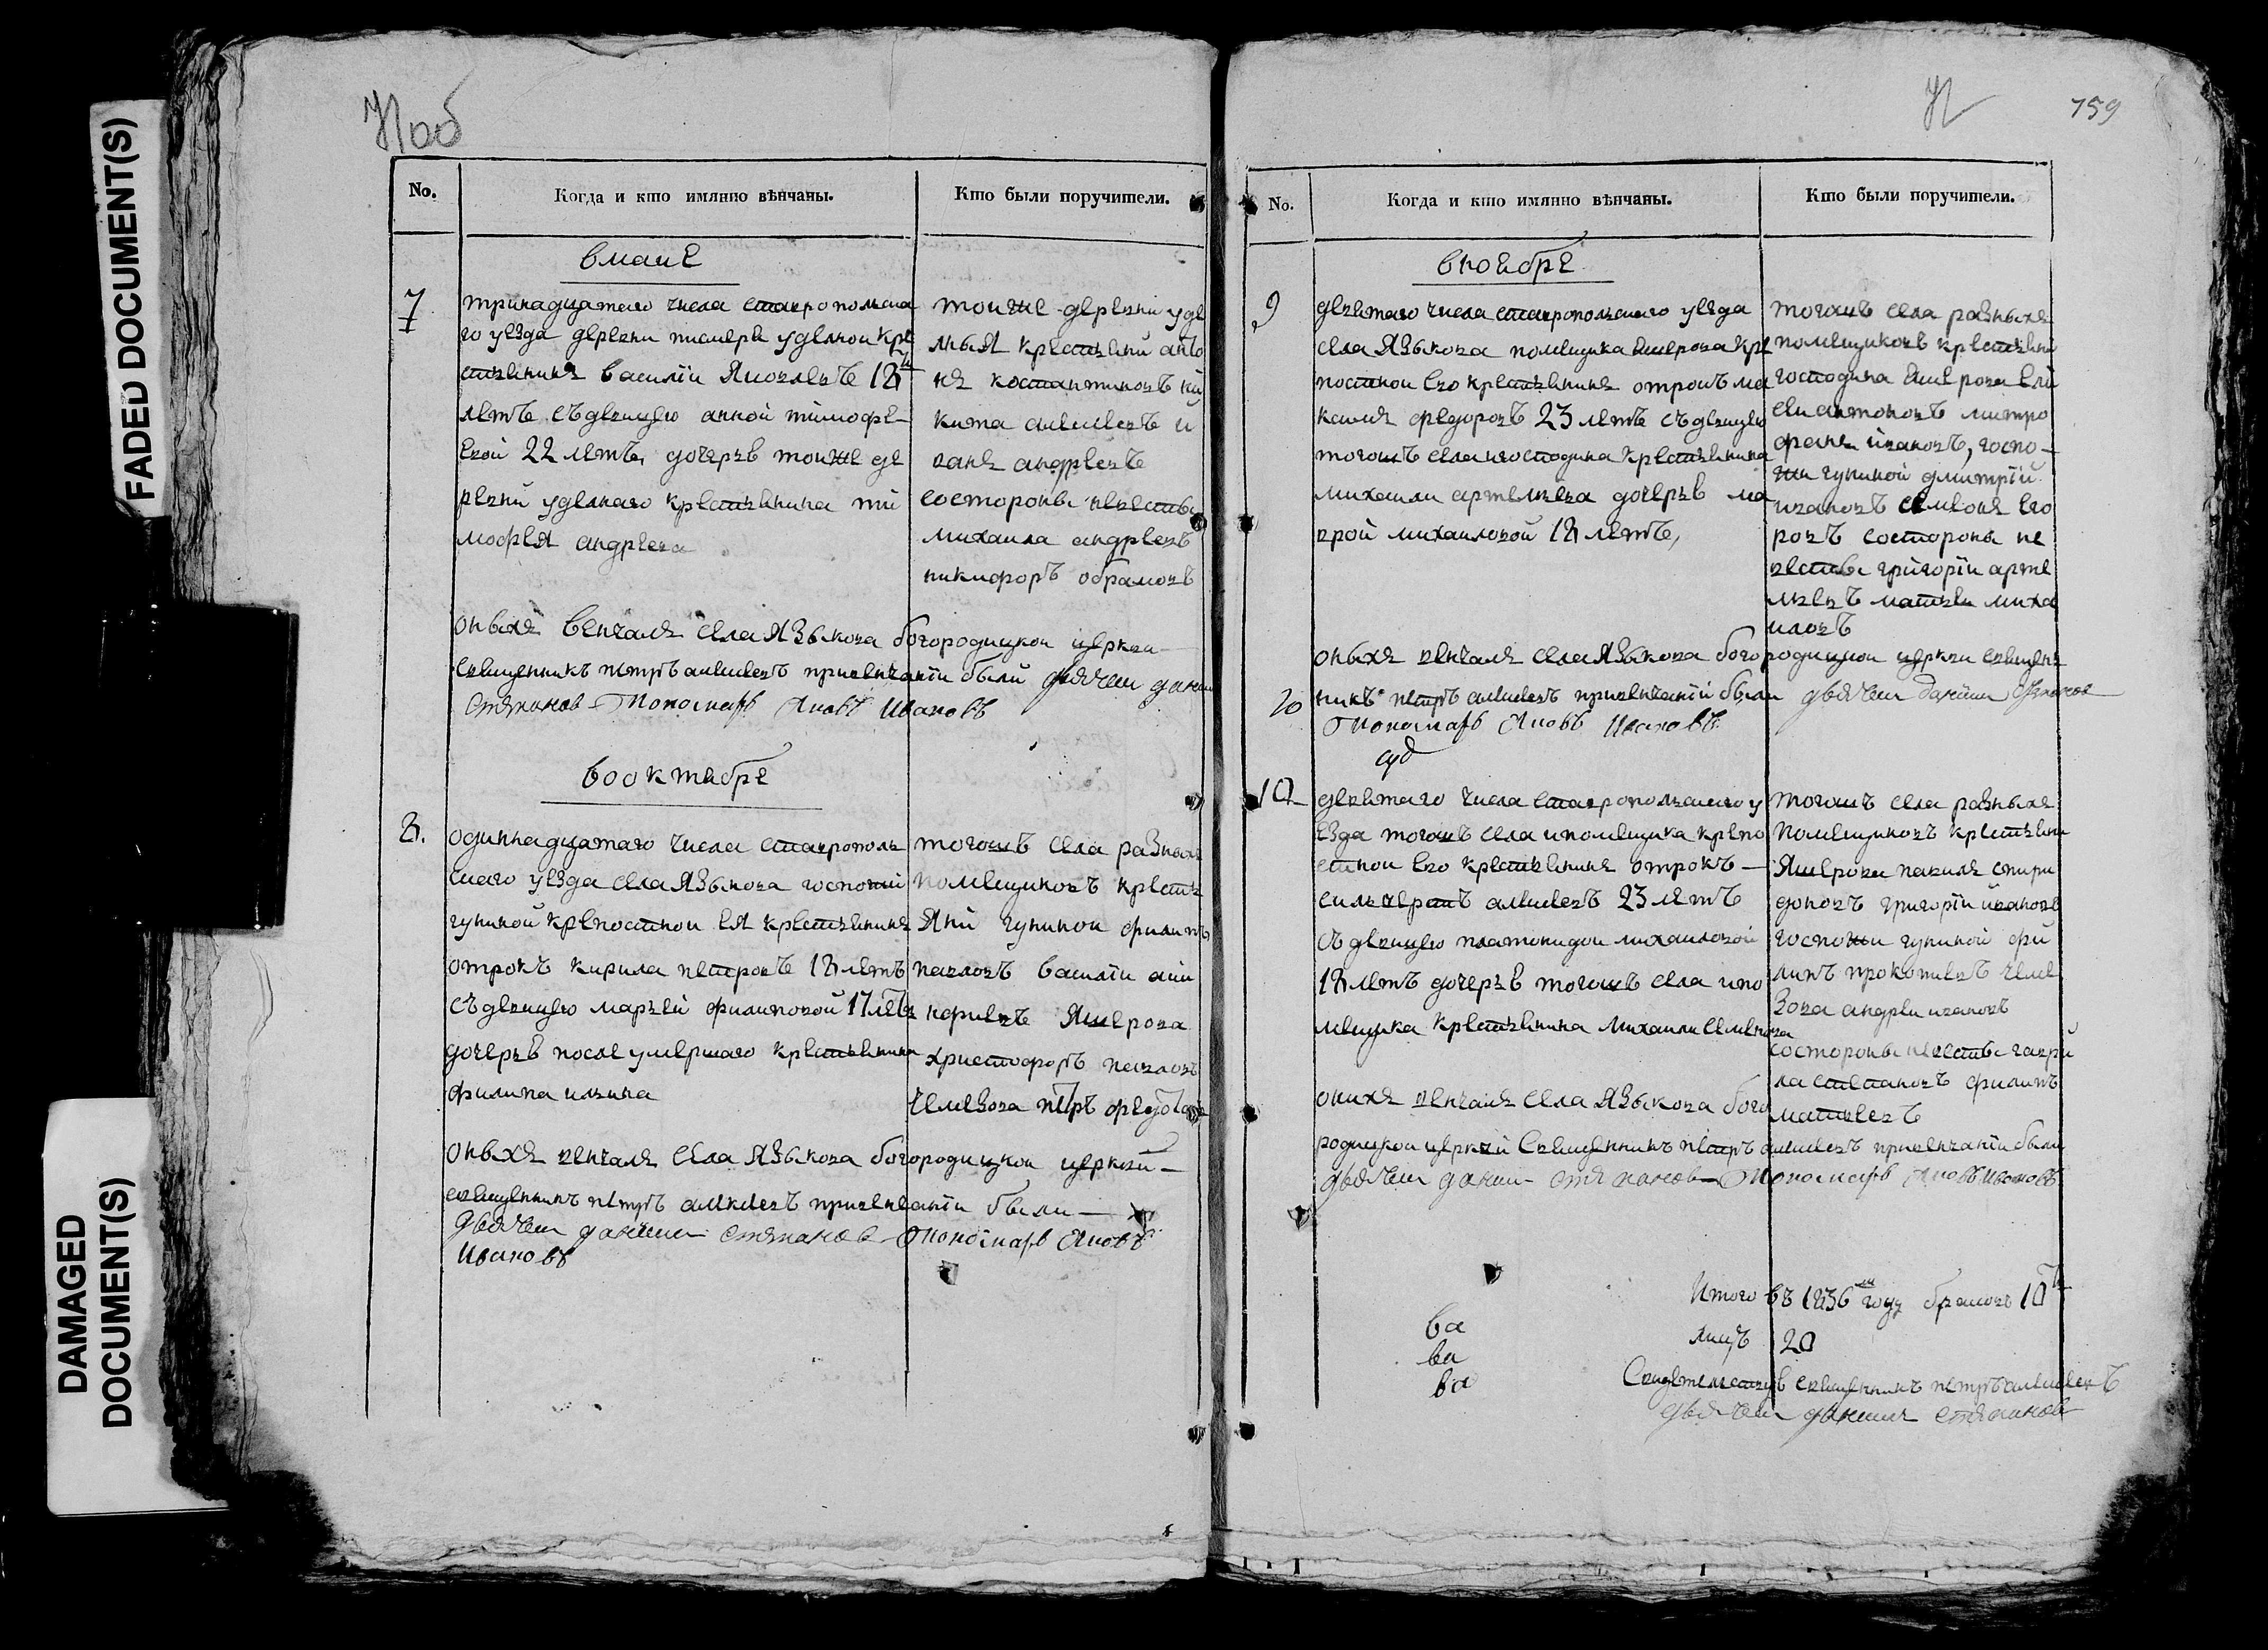 FADED DOCUMENT(S)
DAMAGED
DOCUMENT(S)
об
No.
Когда и кто имянно вѣнчаны.
Кто были поручители.
в маие
7
тринадцатаго числа ставрополска
го уезда деревни писмере уделнои кре
стьянинъ василiи Яковлевъ 18
летъ съ девицею анной тимофе-
евой 22 летъ, дочерьь тоиже де
ревни уделнаго крестьянина ти
мофея андреева
тоиже деревни уде
лныя крестьяни анто
нъ костантиновъ ни
кита аликсеевъ и
ванъ андреевъ
состороны невесты
михаила андреевъ
никифоръ обрамовъ
оныхъ венчалъ села Языкова богородицкои церкви
священникъ петръ аликсеевъ привенчанiи были дьячек данил
Степанов Пономарь Яковъ Ивановъ
во октебре
8.
одиннадцатаго числа ставрополь
скаго уезда села Языкова госпожи
гупиной крепостнои ея крестьянинъ
отрокъ кирила петровъ 18 летъ
съ девицею марьей филиповой 17 летъ
дочерьь после умершаго крестьянина
филипа илина
тогожъ села разныхъ
помещиковъ крестья
яни гупинои филипъ
павловъ василiи ани
керивъ Яшерова
христофоръ павловъ
петръ федотовъ
оныхъ венчалъ села Языкова богородицкои церкви
священникъ петръ аликсеевъ привенчанiи были
Дьячек данила степанов Пономарь Яковъ
Ивановъ
159
No.
Когда и кто имянно вѣнчаны.
Кто были поручители.
в ноебре
9
деветаго числа ставрополскаго уезда
села Языкова помещика Яшерова кре
постнои его крестьянинъ отрокъ ма
каилъ федоровъ 23 летъ съ девицею
тогожъ села игосподина крестьянина
михаили артемьева дочерьь ма
врой михаиловой 18 летъ,
тогожъ села разныхъ
помещиковъ крестьяни
господина Яшерова ели
сеи антоновъ митро
фанъ ивановъ, госпо-
жи гупиной дмитрiй
ивановъ семионъ его
ровъ состороны не
весты григорiи арте
мьевъ матвеи миха
иловъ
оныхъ венчалъ села Языкова богородицкои церкви священ
никъ петръ аликсеевъ привенчанiй были дьячек данiил Степанов
20
Пономарь Яковъ Ивановъ
10
деветаго числа ставрополскаго у
езда тогожъ села ипомещика крепо
стнои его крестьянинъ отрокъ
силчерстъ аликсеевъ 23 летъ
съ девицею платонидои михаиловой
18 летъ дочерьь тогожъ села ипо
мещика крестьянина михаили семенова
тогожъ села разныхъ
помещиковъ крестьяни
Яшерова павилъ спири
доновъ григорiи ивановъ
госпожи гупиной фи
липъ прокопивъ
андреи ивановъ
состороны невесты гаври
ла степановъ филипъ
матвеевъ
онихъ венчалъ села Языкова бого
родицкои церкви священникъ петръ аликсеевъ привенчанiи были
дьячек данил степанов Пономарь Яковъ Ивановъ
Итого въ 1836 году браковъ 10
лицъ 20
ва
ва
ва
Свидетелствуе священникъ петръ аликсеевъ
дьячек данила степанов